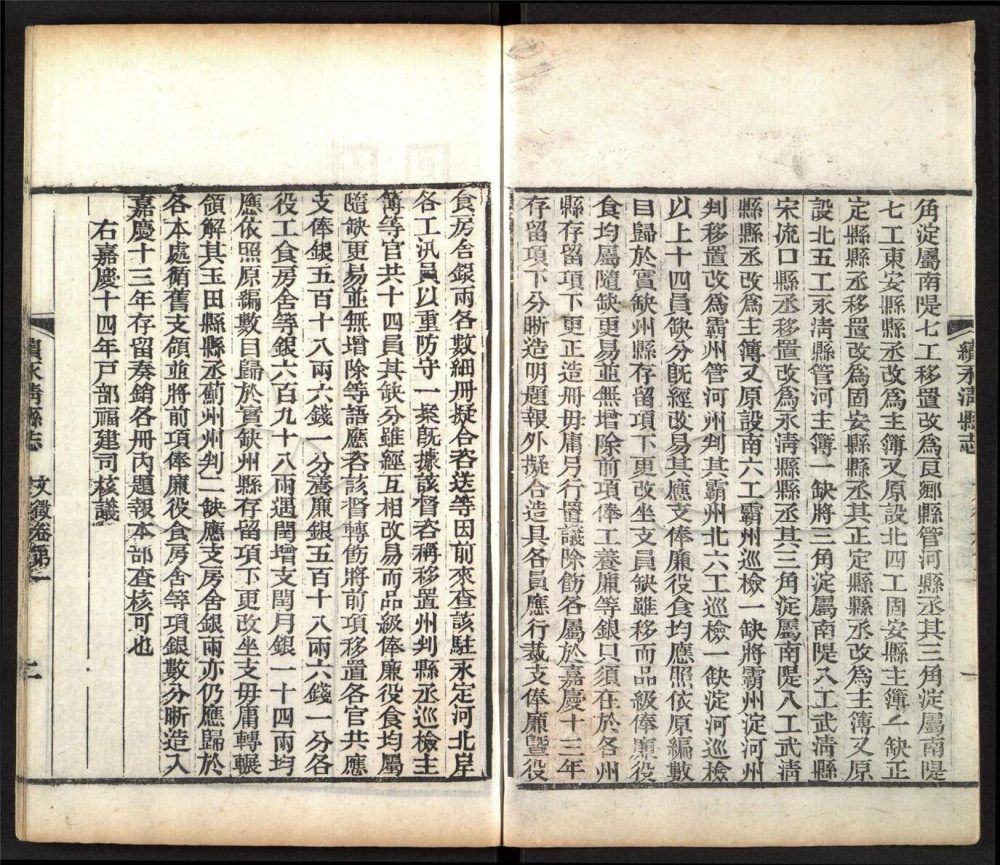 角淀屬南隄七工移置改爲良鄉縣管河縣丞其三角淀屬南隄
七工東安縣縣丞改爲主簿又原設北四工固安縣主簿一缺正
定縣縣丞移置改爲固安縣縣丞其正定縣縣丞改爲主簿又原
設北五工永清縣管河主簿一缺將三角淀屬南隄八工武清縣
宋流口縣丞移置改爲永清縣縣丞其三角淀屬南隄八工武清
縣縣丞改爲主簿又原設南六工霸州巡檢一缺將霸州淀河州
判移置改爲霸州管河州判其霸州北六工巡檢一缺淀河巡檢
以上十四員缺分旣經改易其應支俸廉役食均應照依原編數
目歸於實缺州縣存留項下更改坐支員缺雖移而品級俸廉役
食均屬隨缺更易並無增除前項俸工養廉等銀只須在於各州
縣存留項下更正造冊毋庸另行置議除飭各屬於嘉慶十三年
存留項下分晰造明題報外擬合造具各員應行裁支俸廉曁役
續永清縣志
食房舍銀兩各數細冊擬合咨送等因前來查該駐永定河北岸
各工汛員以重防守一案旣據該督咨稱移置州判縣丞巡檢主
簿等官共十四員其缺分雖經互相改易而品級俸廉役食均屬
隨缺更易並無增除等語應咨該督轉飭將前項移置各官共應
支俸銀五百十八兩六錢一分養廉銀五百十八兩六錢一分各
役工食房舍等銀六百九十八兩遇閏增支閏月銀一十四兩均
應依照原編數目歸於實缺州縣存留項下更改坐支毋庸轉輾
領解其玉田縣縣丞薊州州判二缺應支房舍銀兩亦仍應歸於
各本處循舊支領並將前項俸廉役食房舍等項銀數分晰造入
嘉慶十三年存留奏銷各冊內題報本部查核可也
右嘉慶十四年戸部福建司核議
續永清縣志 文徵卷第一 二